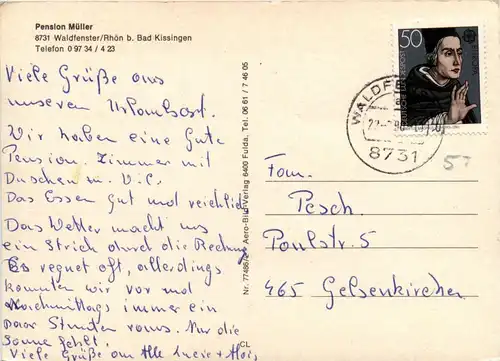 Pension Müller
8731 Waldfenster/Rhön b. Bad Kissingen
Telefon 0 97 34 / 4 23
Viele Grüße aus
unseren Urlaubsort.
Wir haben eine Gute
Pension. Zimmer mit
Duschen u.
Das Essen gut und reichlich
Das Wetter macht uns
ein Strich durch die Rechnung
Es regnet oft, allerdings
konnten wir vor und
Nachmittags immer ein
paar Stunten raus. Nur die
Sonne fehlt.
Viele Grüße an Alle Lucie +
Aero-Bild-Verlag 6400 Fulda, Tel. 06 61 / 7 46 05
CL
50
WALDF
8731
57
Fam.
Pesch.
Paulstr. 5
465 Gelsenkirchen